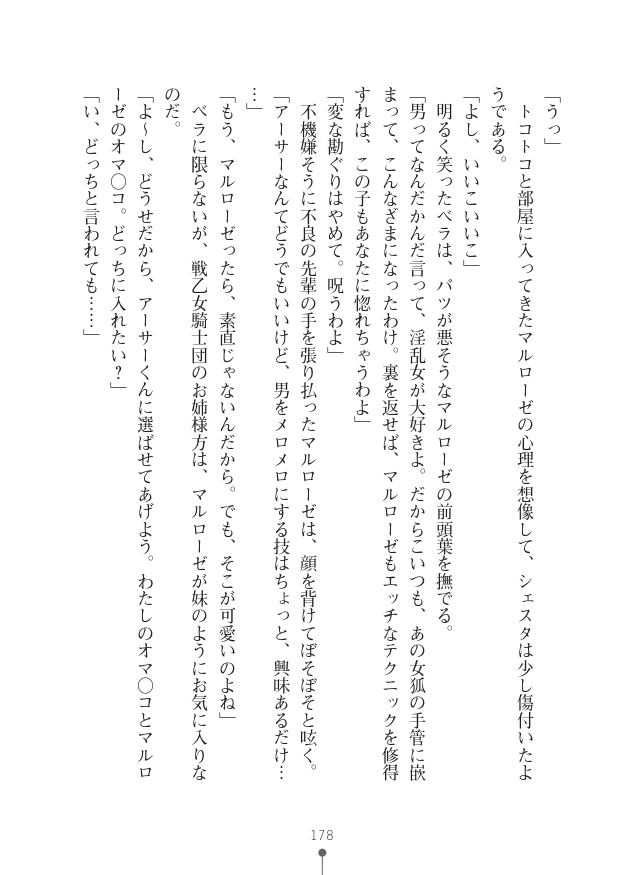 「うっ」
　トコトコと部屋に入ってきたマルローゼの心理を想像して、シェスタは少し傷付いたよ
うである。
「よし、いいこいいこ」
　明るく笑ったベラは、バツが悪そうなマルローゼの前頭葉を撫でる。
「男ってなんだかんだ言って、淫乱女が大好きよ。だからこいつも、あの女狐の手管に嵌
まって、こんなざまになったわけ。裏を返せば、マルローゼもエッチなテクニックを修得
すれば、この子もあなたに惚れちゃうわよ」
「変な勘ぐりはやめて。呪うわよ」
　不機嫌そうに不良の先輩の手を張り払ったマルローゼは、顔を背けてぼそぼそと呟く。
「アーサーなんてどうでもいいけど、男をメロメロにする技はちょっと、興味あるだけ…
…」
「もう、マルローゼったら、素直じゃないんだから。でも、そこが可愛いのよね」
　ベラに限らないが、戦乙女騎士団のお姉様方は、マルローゼが妹のようにお気に入りな
のだ。
「よ～し、どうせだから、アーサーくんに選ばせてあげよう。わたしのオマ〇コとマルロ
ーゼのオマ〇コ。どっちに入れたい？」
「い、どっちと言われても……」
178